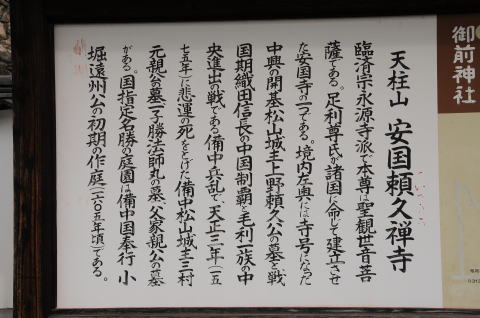 天柱山 安国頼久禅寺
臨済宗永源寺派で本尊は聖観世音菩
薩である。足利尊氏が諸国に命じて建立させ
た安国寺の一つである。境内左奥には寺号になった
中興の開基松山城主上野頼久公の墓と戦
国期織田信長の中国制覇・毛利一族の中
央進出の戦である備中兵乱で、天正三年(一五
七五年)に悲運の死をとげた備中松山城主三村
元親公の墓、子勝法師丸の墓、父家親公の墓
がある。国指定名勝の庭園は備中国奉行 小
堀遠州公の初期の作庭(一六〇五年頃)である。
御前神社